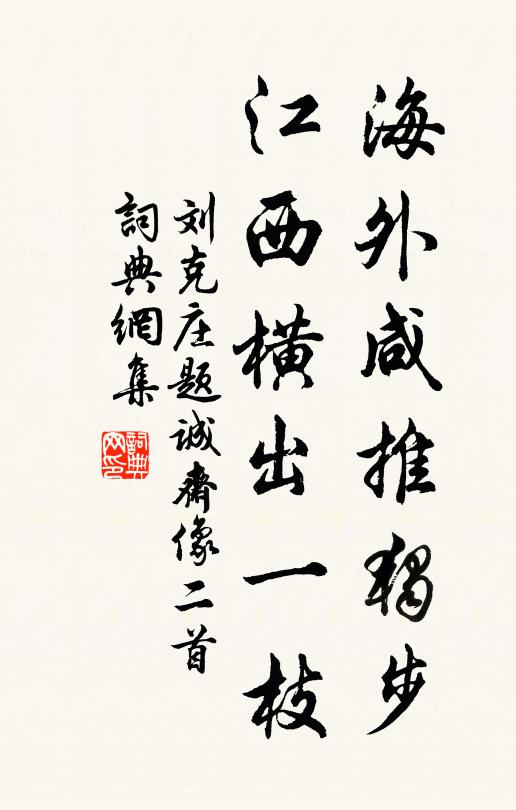 海外咸推獨步
江西橫出一枝
刘克庄题诚斋像二首
詞典網集
詞典
网印